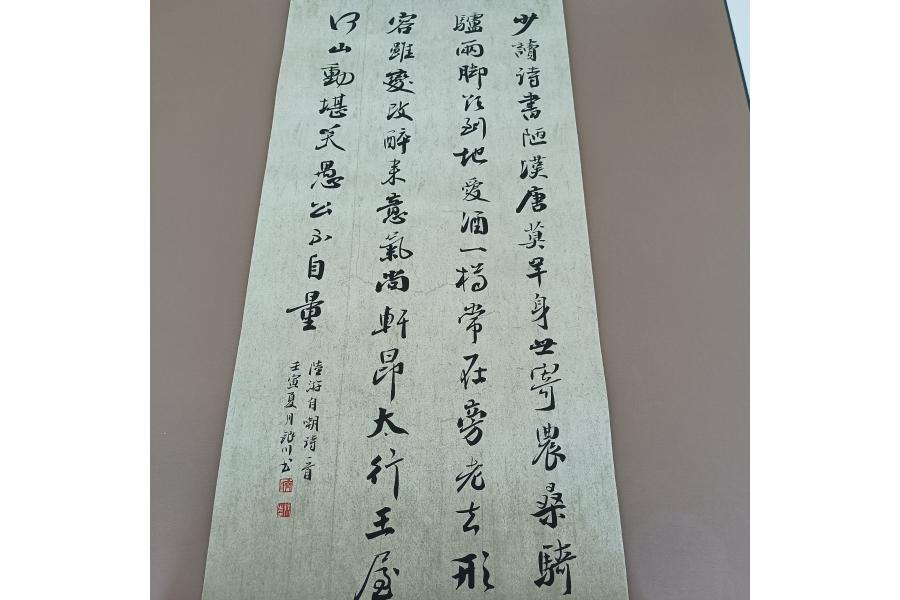 少讀诗書陋漢唐莫年身世寄農桑騎
驢兩脚欲到地愛酒一樽常在旁老去形
容雖變改醉来意氣尚軒昂太行王屋
何山動堪笑愚公不自量
陸游自嘲诗一首
壬寅夏月川书